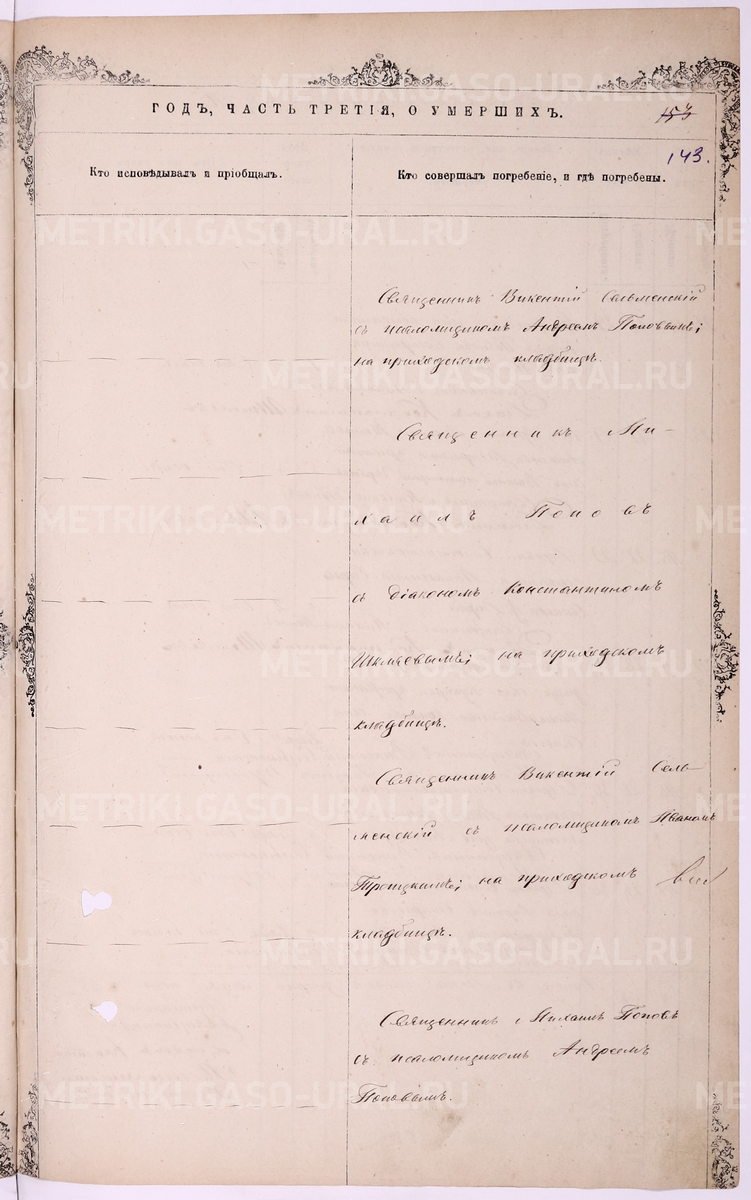 ГОДЪ, ЧАСТЬ ТРЕТІЯ, О УМЕРШИХЪ.
143.
Кто исповѣдывалъ и пріобщалъ.
Кто совершалъ погребеніе, и гдѣ погребены.
Священникъ Викентій Сельменскій
съ псаломщикомъ Андреемъ Поповымъ;
на приходскомъ кладбищѣ.
Священникъ Ми-
хаилъ Поповъ
съ діакономъ Константиномъ
Шкляевымъ; на приходскомъ
кладбищѣ.
Священникъ Викентій Сель-
менскій съ псаломщикомъ Иваномъ
Троицкимъ; на приходскомъ
кладбищѣ.
Священникъ Михаилъ Поповъ
съ псаломщикомъ Андреемъ
Поповымъ.
METRIKI.GASO-URAL.RU